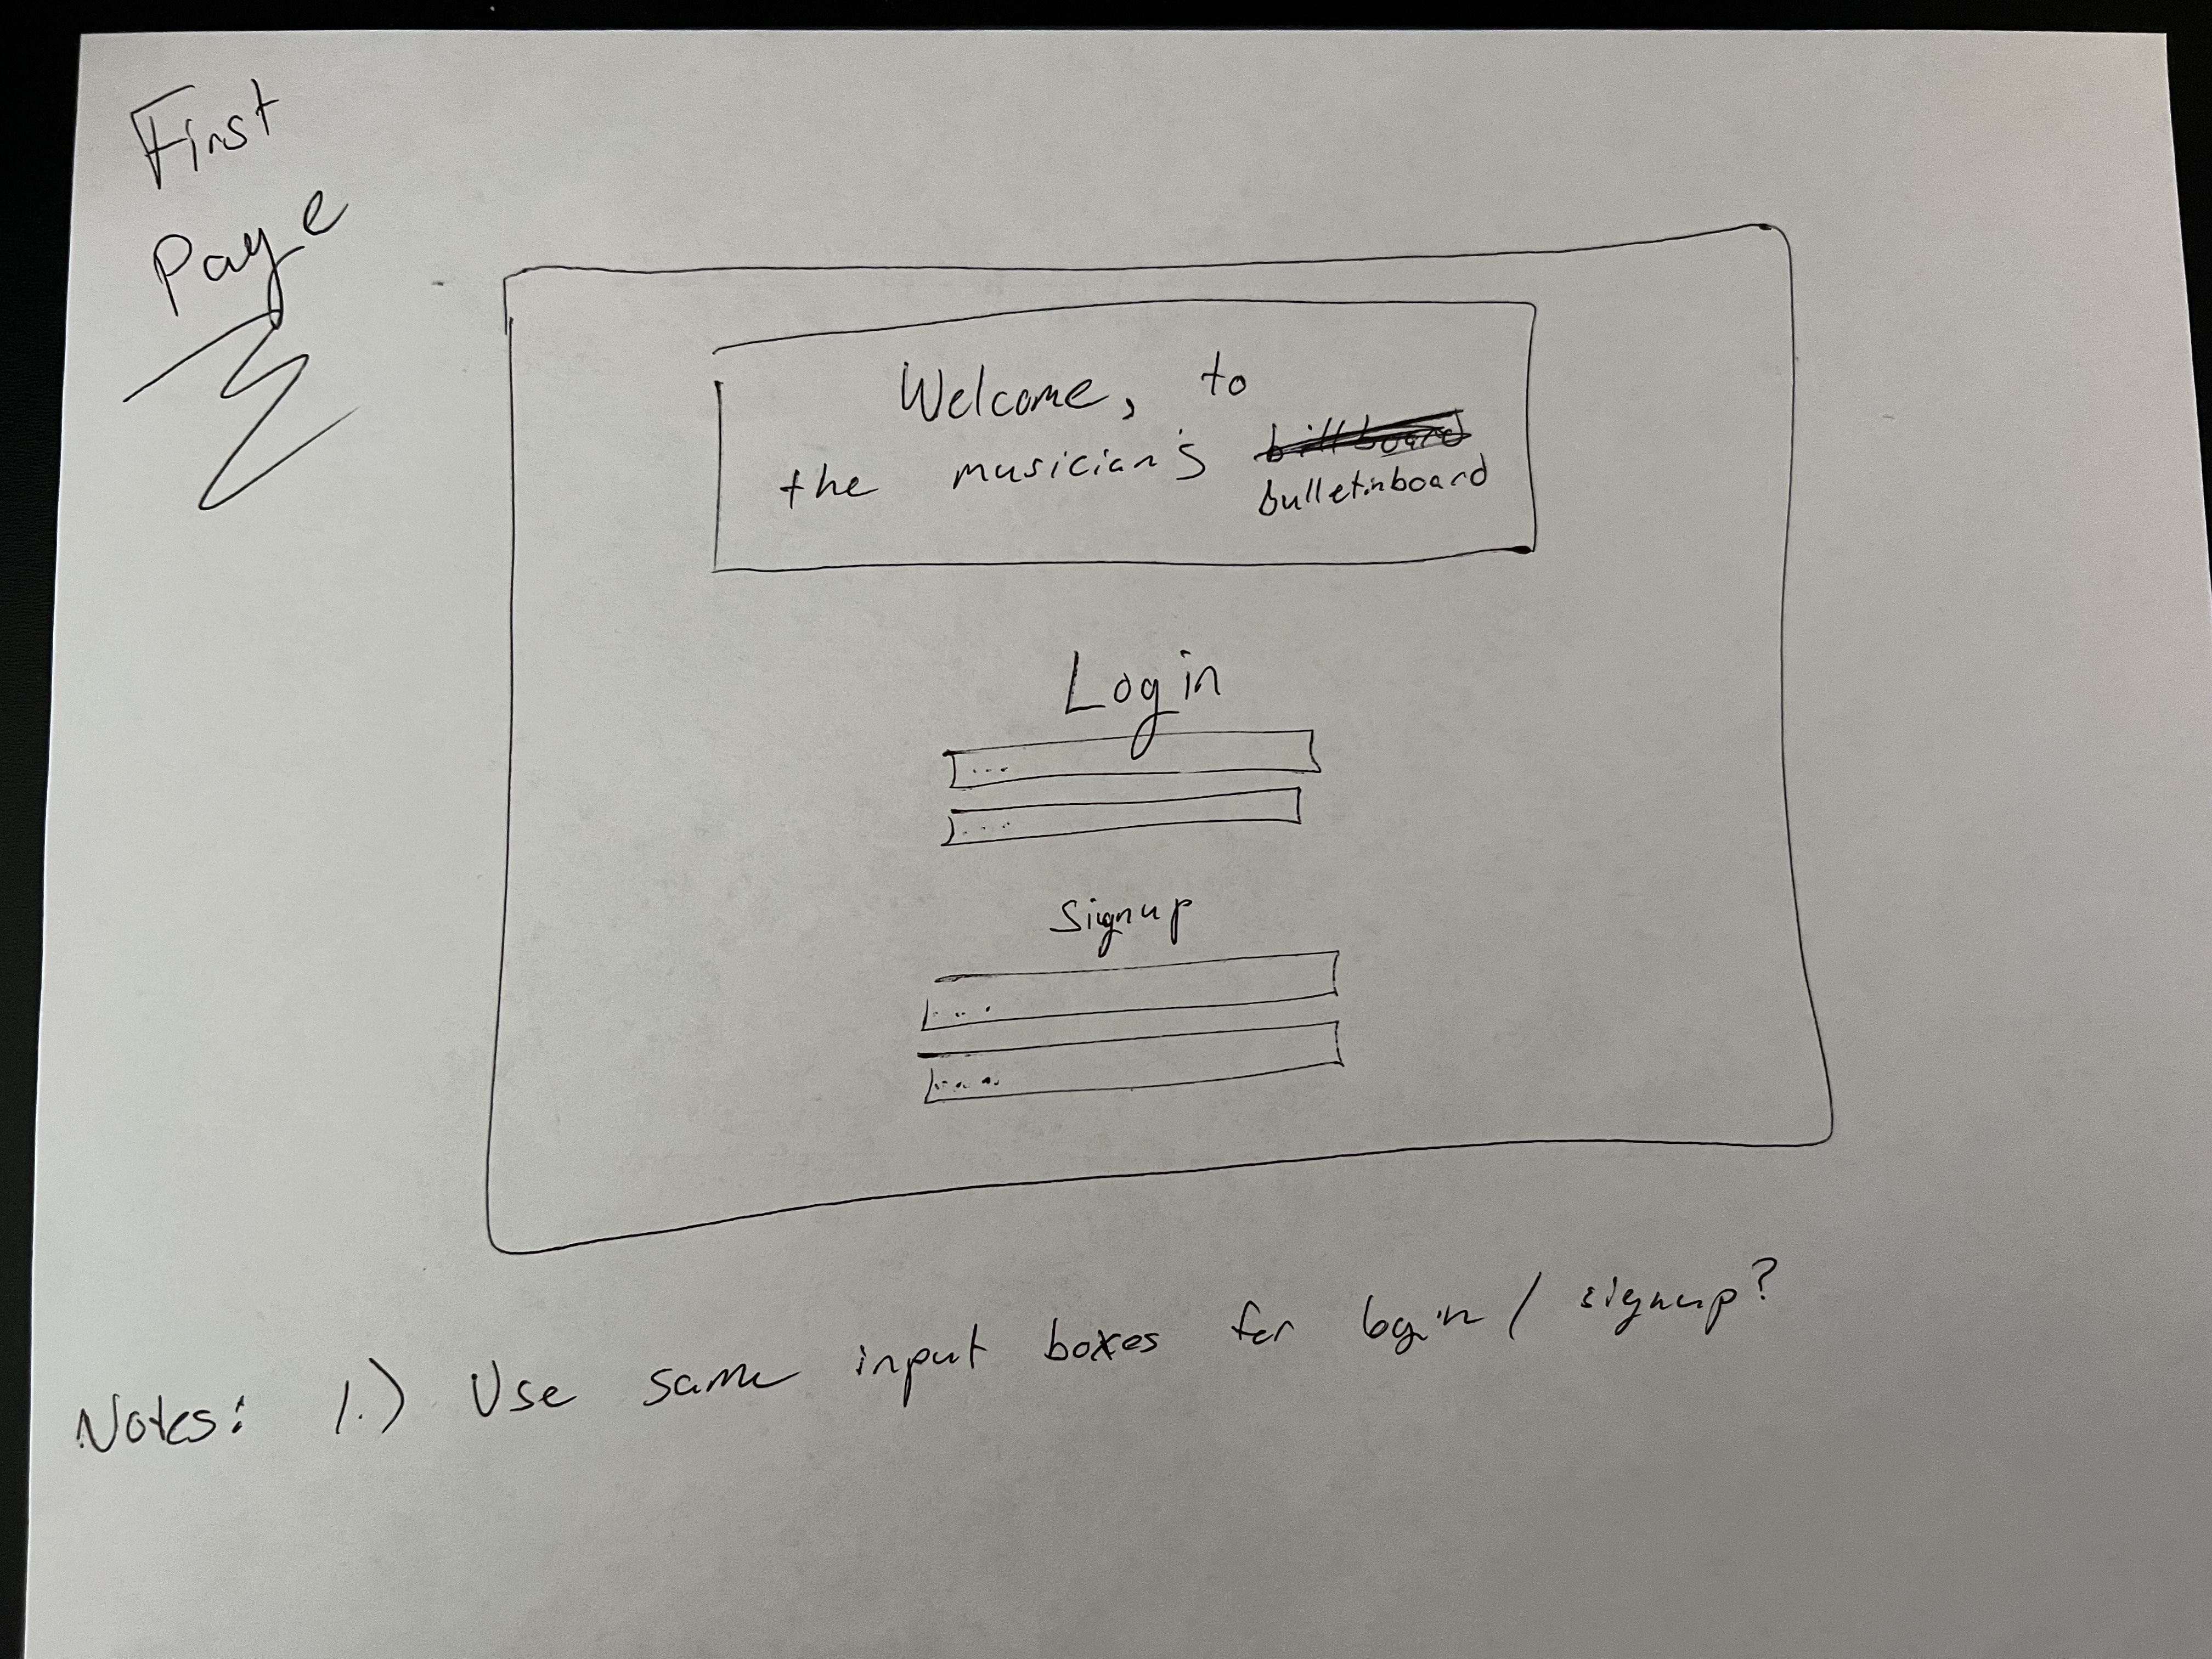 First
Page
Welcome, to
the musician's billboard
bulletinboard
Login
...
...
Signup
...
...
Notes: 1.) Use same input boxes for login / signup?